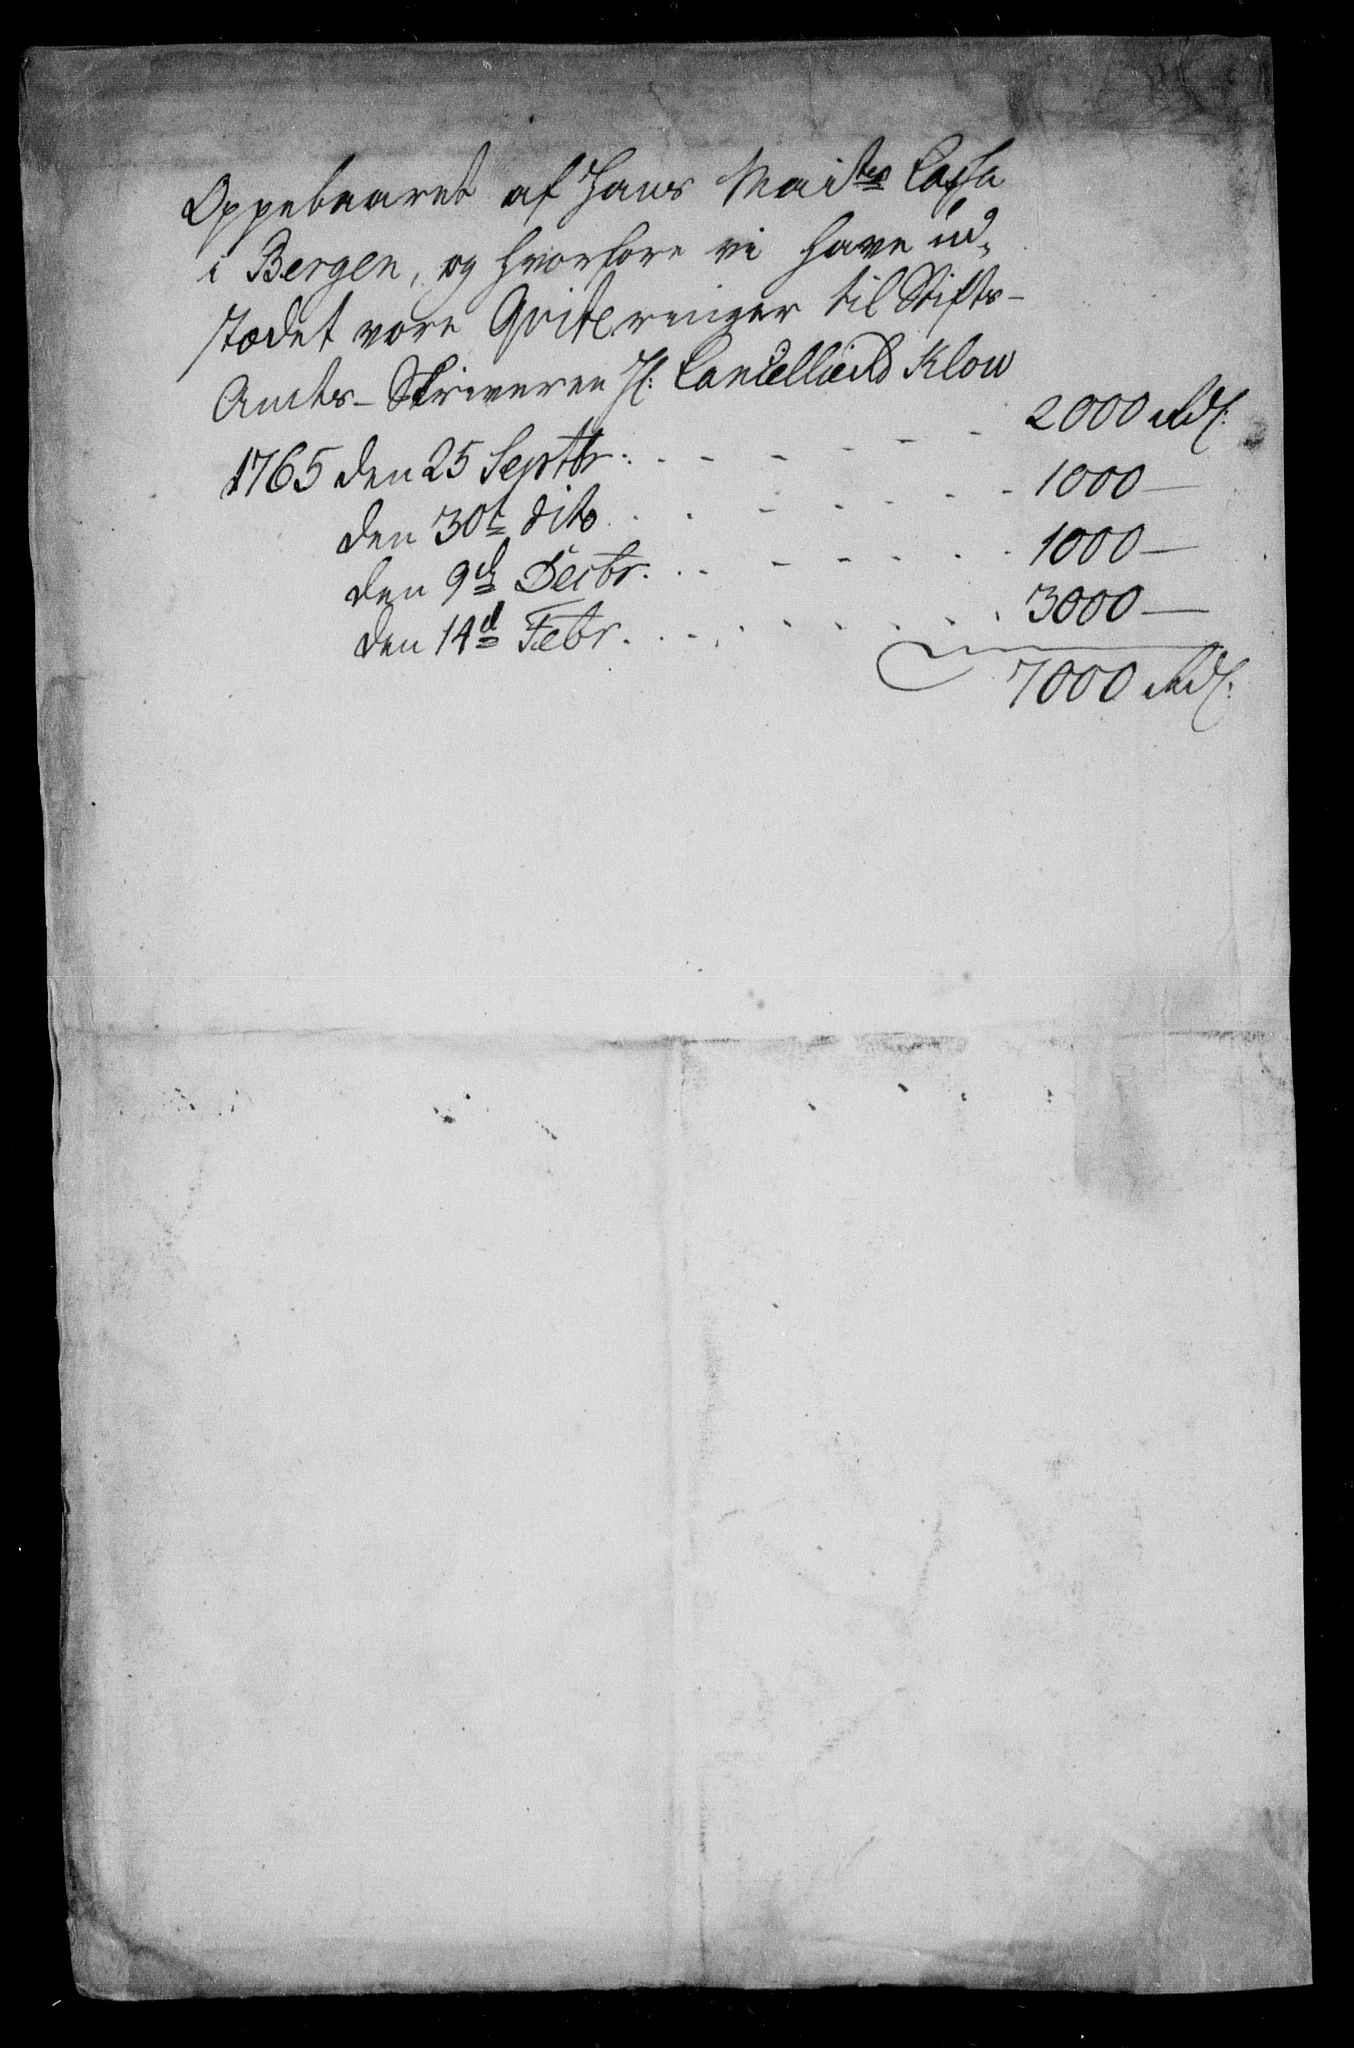 Oppebaaret af Hans Maits Cassa
i Bergen, og hvorfore vi have ud-
stædet vore Qviteringer til Stifts-
Amts-Skriveren H: Cancellieraad Klow
1765 den 25 Septbr. . . . - - - - - 2000 Rd:
den 30t dito . . . - - - - - - 1000 —
den 9d Decbr. . . - - - - - . 1000 —
den 14d Febr. . . . . . . . . . 3000 —
7000 Rd: